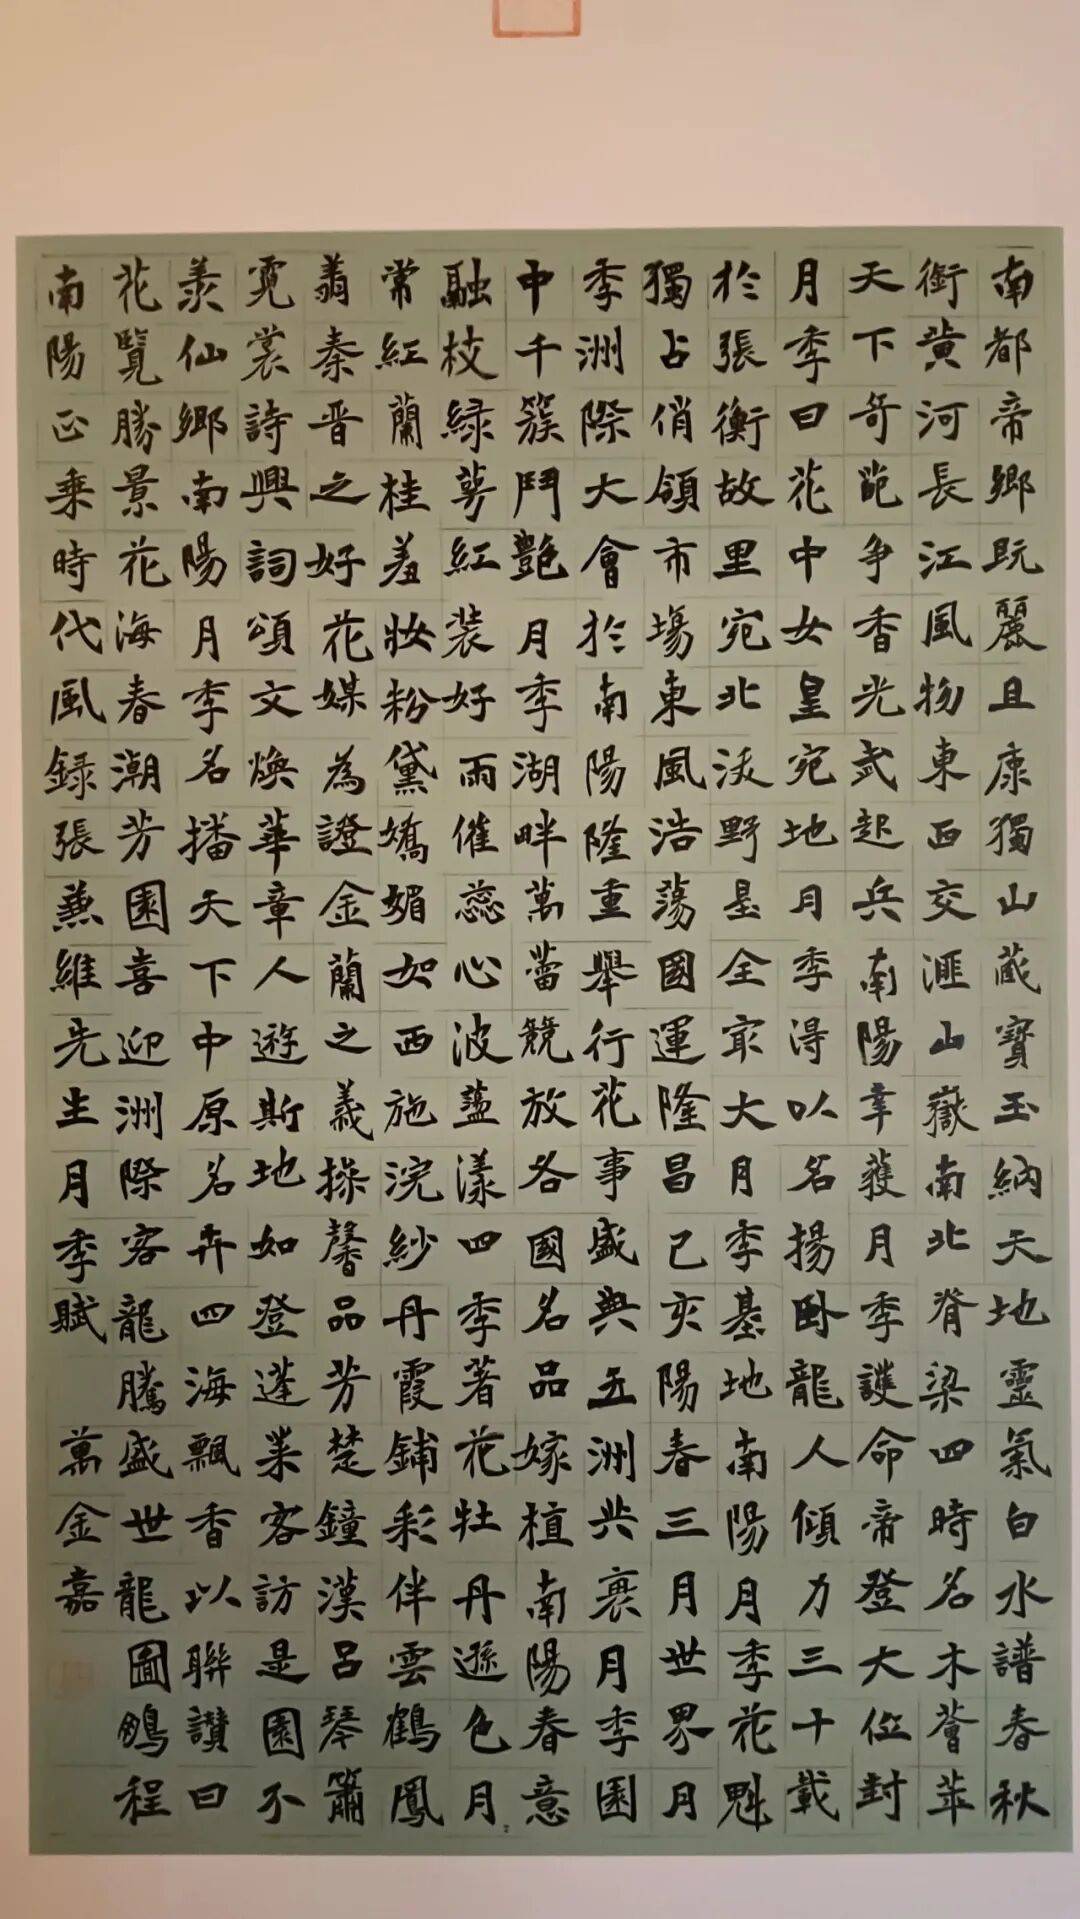 南都帝鄉既麗且康獨山蔵寶玉納天地靈氣白水譜春秋
銜黄河長江風物東西交滙山嶽南北脊梁四時名木薈萃
天下奇葩争香光武起兵南陽幸獲月季護命帝登大位封
月季曰花中女皇宛地月季得以名揚卧龍人傾力三十載
於張衡故里宛北沃野是全㝡大月季基地南陽月季花魁
獨占俏領市場東風浩蕩國運隆昌己亥陽春三月世界月
季洲際大會於南陽隆重舉行花事盛典五洲共襄月季園
中千簇鬥艷月季湖畔萬蕾競放各國名品嫁植南陽春意
融枝緑萼紅装好雨催蕊心波蕩漾四季著花牡丹遜色月
常紅蘭桂羞妝粉黛嬌媚如西施浣紗丹霞鋪彩伴雲鶴鳳
翥秦晋之好花媒為證金蘭之義操馨品芳楚鐘漢吕琴簫
霓裳詩興詞頌文煥華章人遊斯地如登蓬莱客訪是園不
羨仙鄉南陽月季名播天下中原名卉四海飄香以聯讚曰
花覽勝景花海春潮芳園喜迎洲際客龍騰盛世龍圖鵬程
南陽正乘時代風録張兼維先生月季賦 萬金嘉